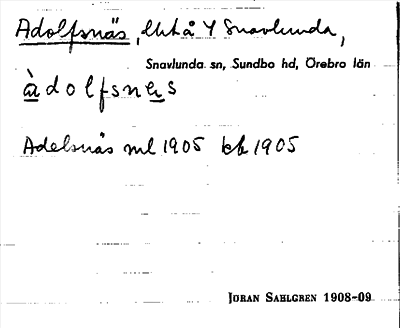 Adolfsnäs, lht å Y Snavlunda,
Snavlunda sn, Sundbo hd, Örebro län
àdolfsnes
Adelsnäs ml 1905 kk 1905
JÖRAN SAHLGREN 1908-09